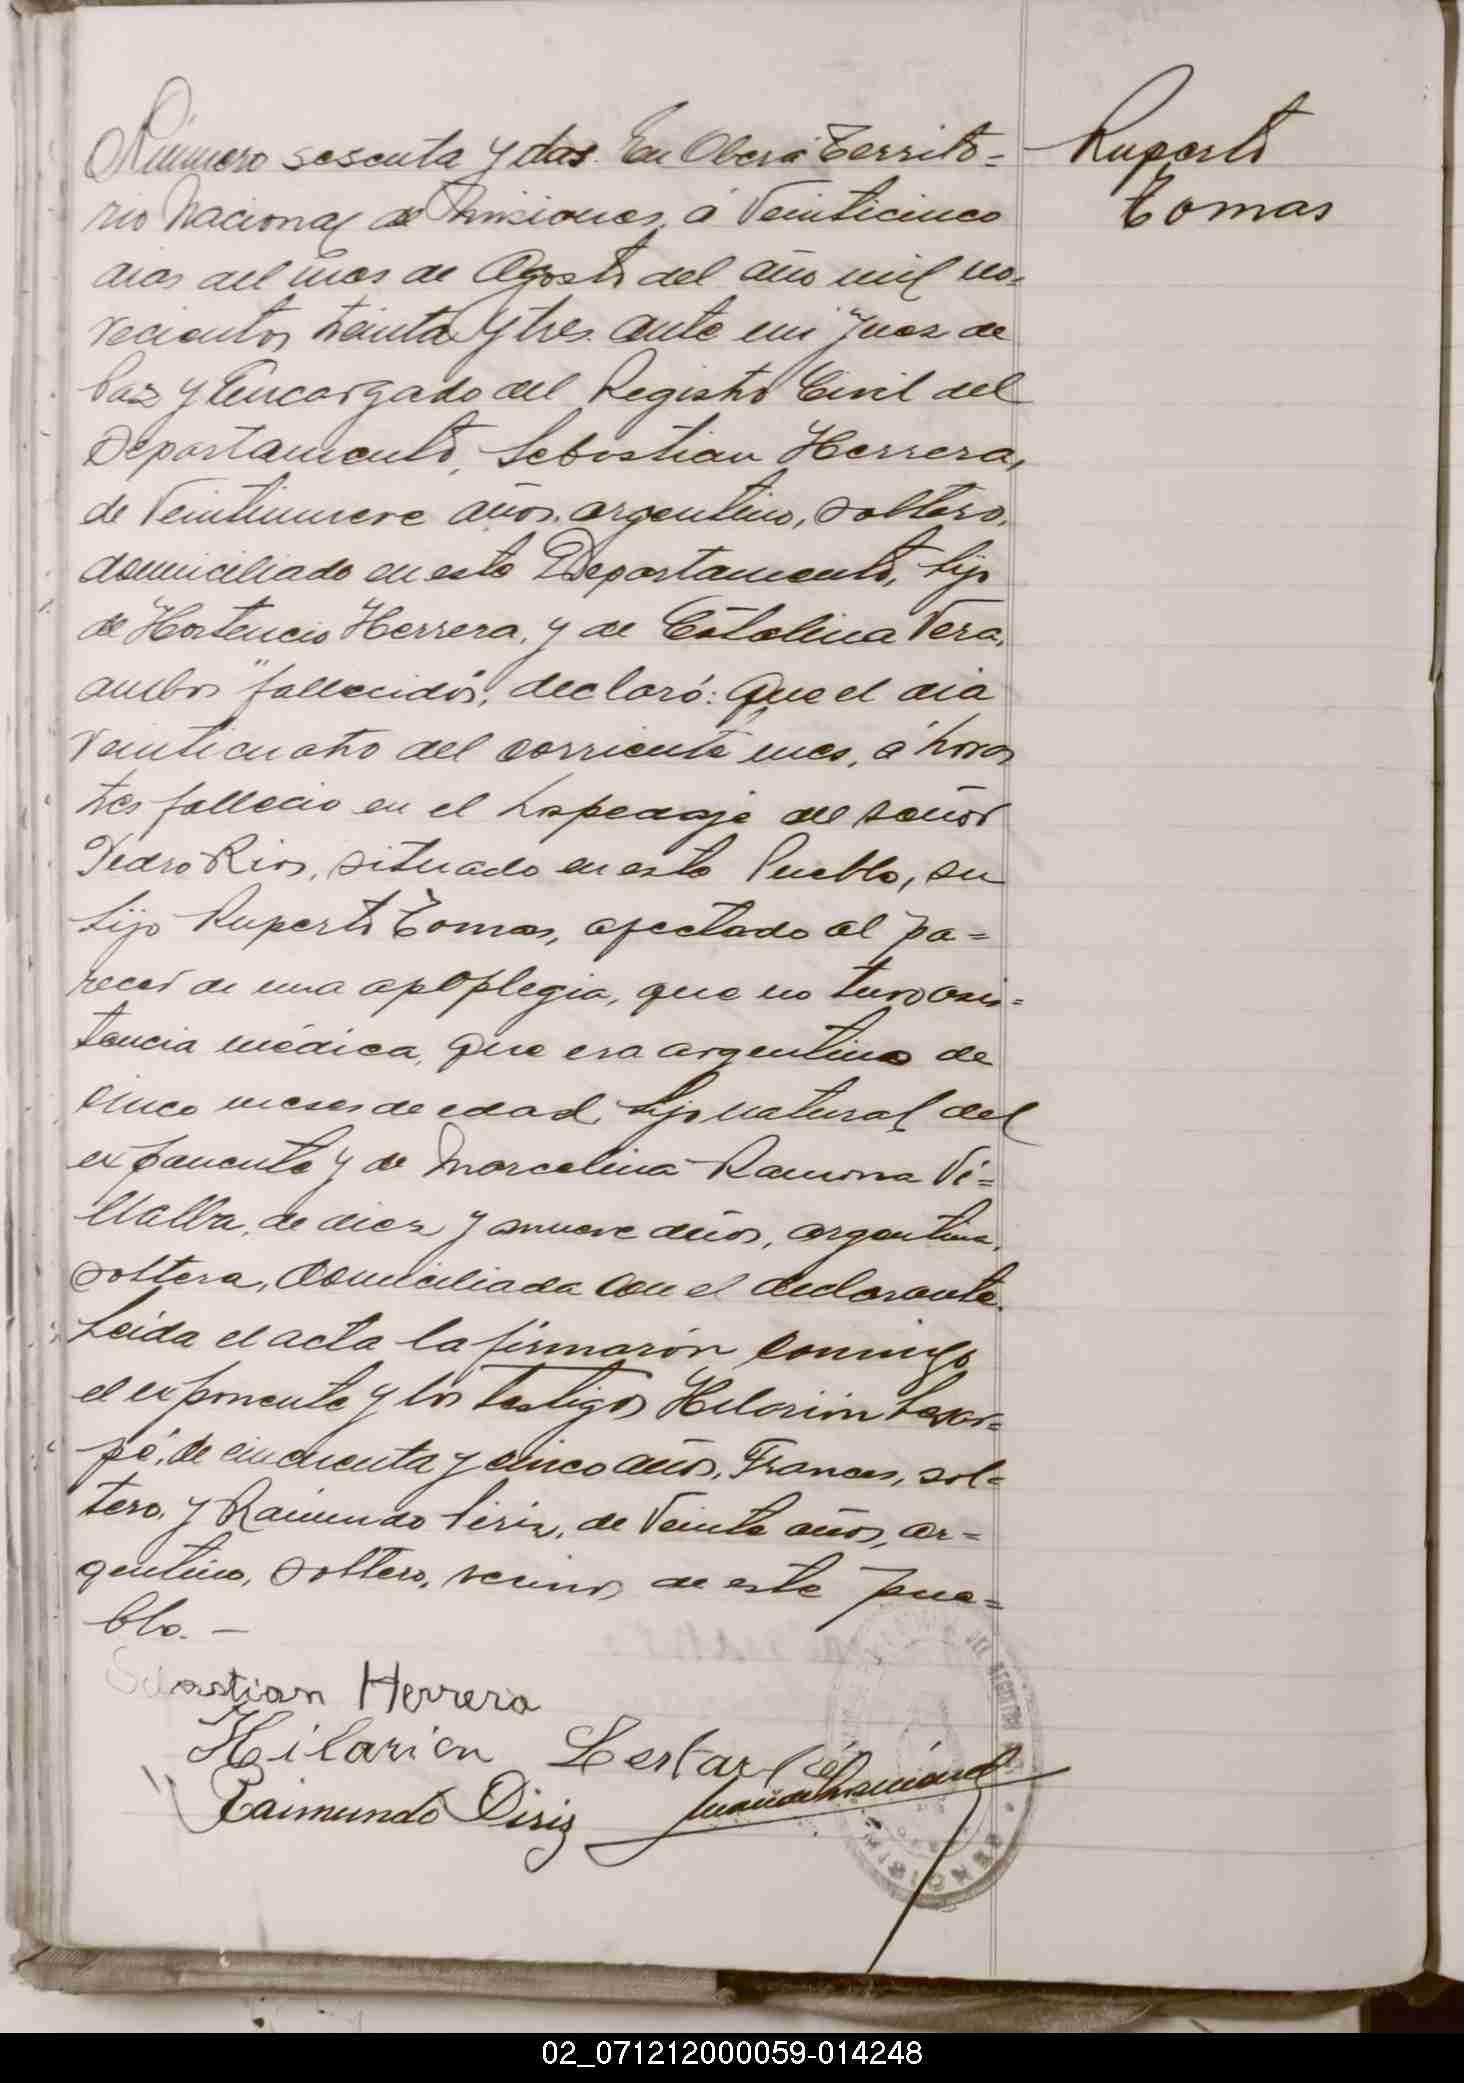 Número sesenta y dos. En Oberá Territo=
rio Nacional de Misiones, á Veinticinco
dias del mes de Agosto del año mil no-
vecientos treinta y tres. ante mi Juez de
Paz y Encargado del Registro Civil del
Departamento, Sebastian Herrera,
de Veintinueve años, argentino, soltero,
domiciliado en este Departamento, hijo
de Hortencio Herrera, y de Catalina Vera,
ambos fallecidos, declaró: Que el dia
Veinticuatro del corriente mes, á horas
tres fallecio en el hospedaje del señor
Pedro Rios, situado en este Pueblo, su
hijo Ruperto Tomas, afectado al pa=
recer de una apoplegia, que no tuvo asis=
tencia médica, que era argentino de
cinco meses de edad, hijo natural del
exponente y de Marcelina Ramona Vi=
llalba, de diez y nueve años, argentina,
soltera, domiciliada con el declarante.
Leida el acta la firmarón conmigo
el exponente y los testigos Hilarión
de cincuenta y cinco años, Frances, sol=
tero, y Raimundo Piriz, de Veinte años, ar=
gentino, soltero, vecinos de este pue=
blo. —
Ruperto
Tomas
Sebastian Herrera
Hilarion
Raimundo Piriz
02_071212000059-014248